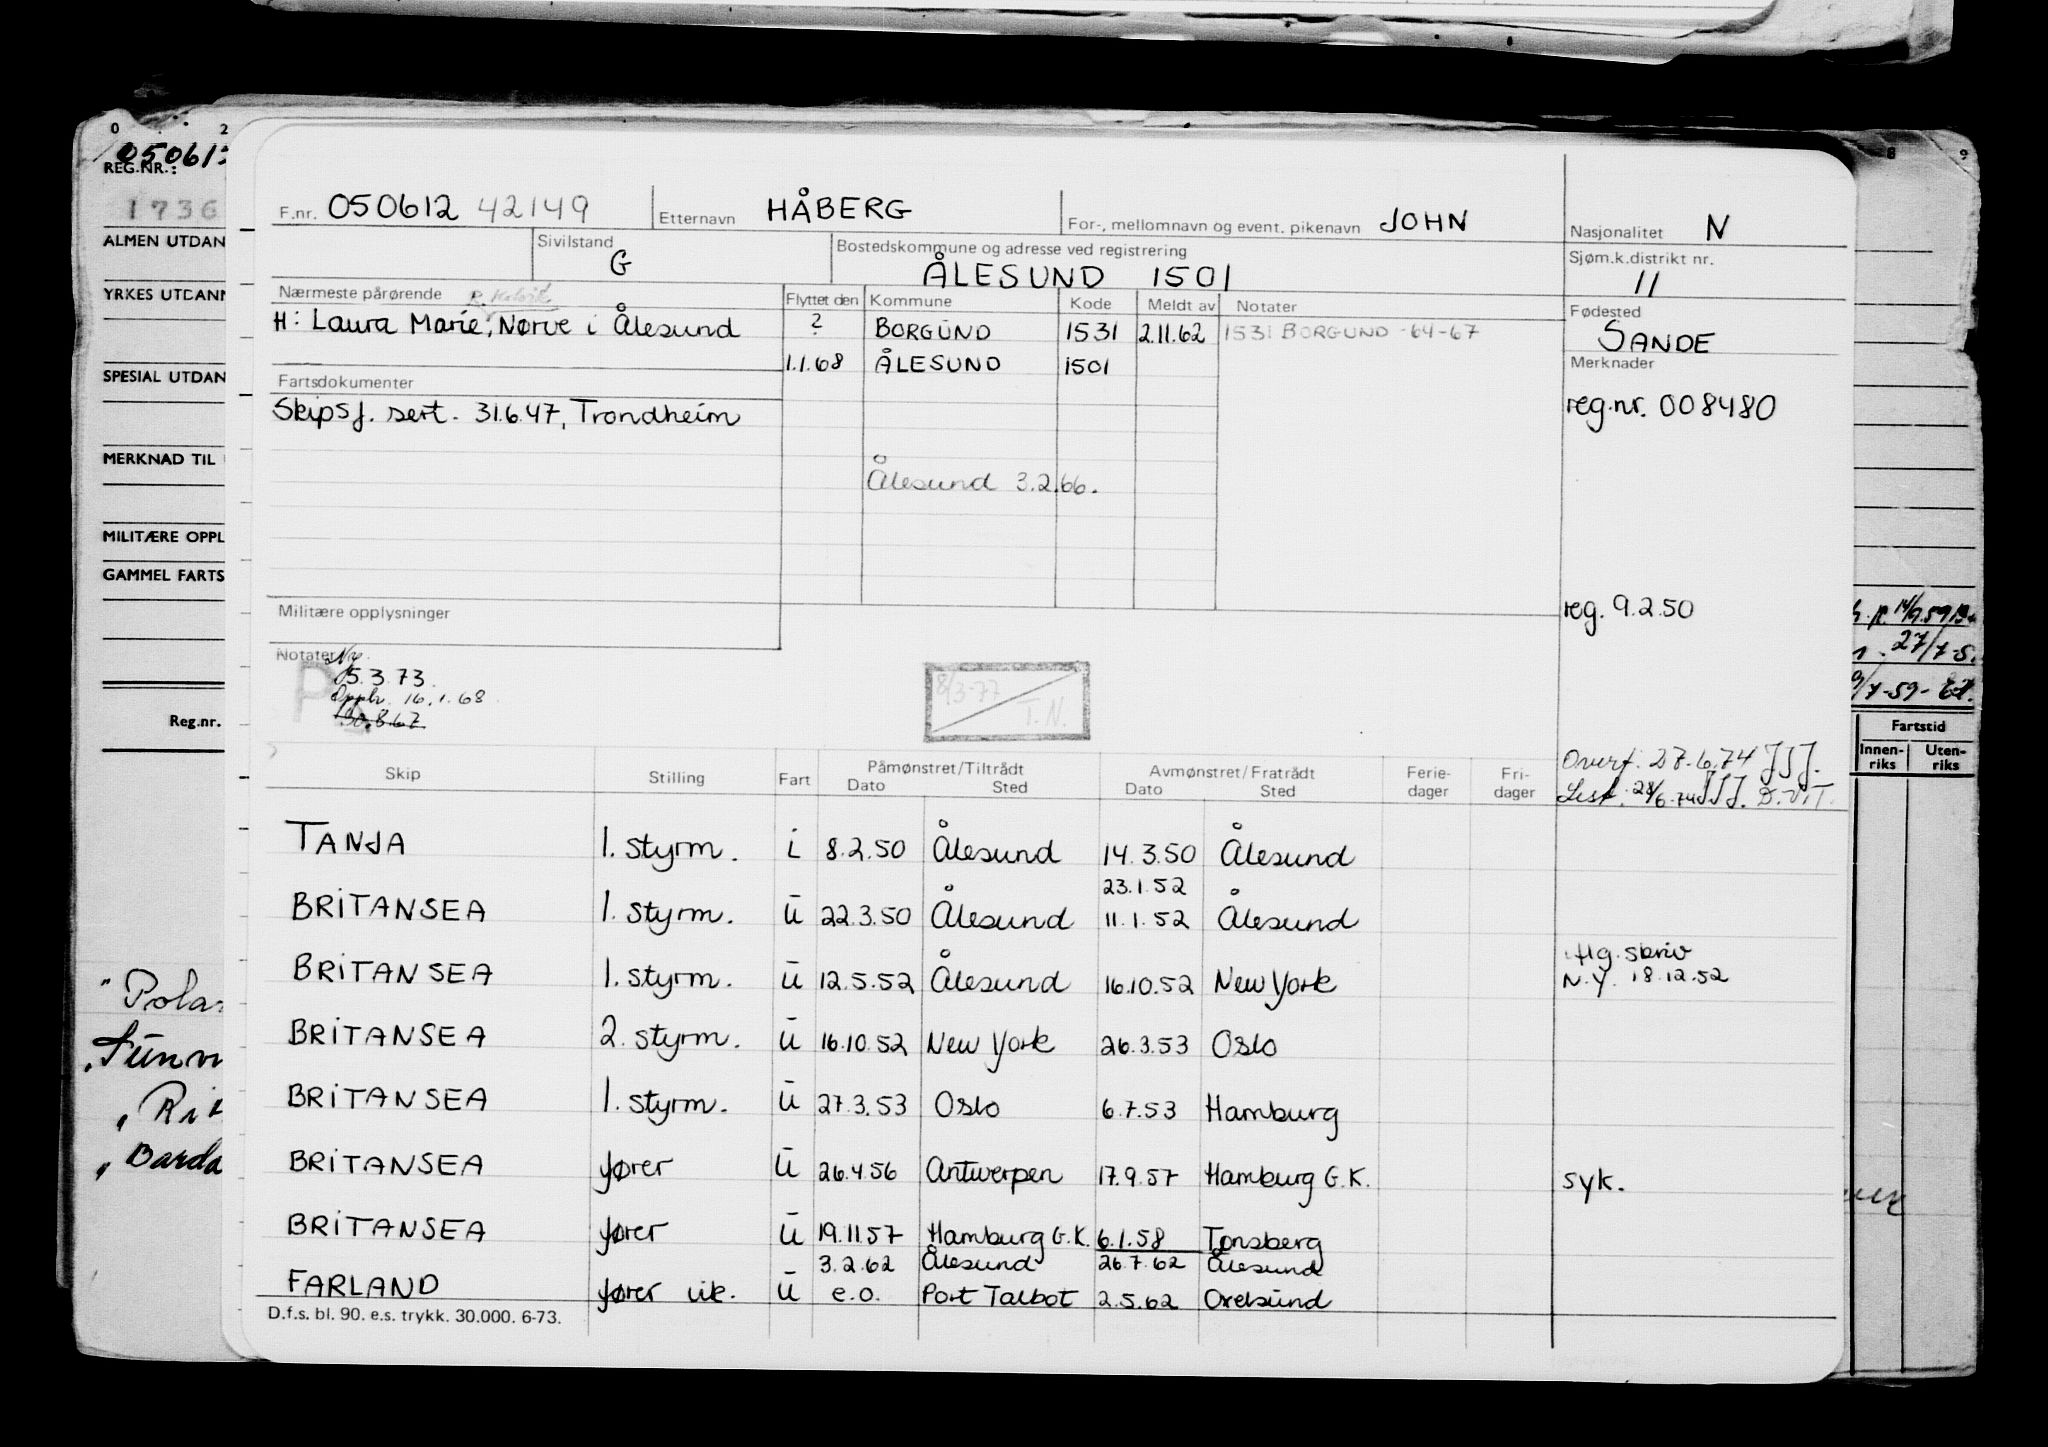 0 2 8 9
050613
REG.NR.:
1736
ALMEN UTDAN
YRKES UTDANN
SPESIAL UTDAN
MERKNAD TIL
MILITÆRE OPPL
GAMMEL FARTS
Reg.nr.
F.nr. 050612 42149 Etternavn HÅBERG For-, mellomnavn og event. pikenavn JOHN Nasjonalitet N
Sivilstand G Bostedskommune og adresse ved registrering ÅLESUND 1501 Sjøm.k.distrikt nr. 11
Nærmeste pårørende Flyttet den Kommune Kode Meldt av Notater Fødested
H: Laura Marie, Nørve i Ålesund ? BORGUND 1531 2.11.62 1531 BORGUND -64-67 SANDE
1.1.68 ÅLESUND 1501 Merknader
Fartsdokumenter
Skipsf. sert. 31.6.47, Trondheim reg.nr. 008480
Ålesund 3.2.66.
Militære opplysninger reg. 9.2.50
Notater Ny.
5.3.73.
Oppbr. 16.1.68
30.8.67
8/3-77 T.N.
Overf. 27.6.74 JSJ.
Skip Stilling Fart Påmønstret/Tiltrådt Dato Sted Avmønstret/Fratrådt Dato Sted Ferie-dager Fri-dager
28/6-74 JSJ. D.V.T.
TANJA 1. styrm. i 8.2.50 Ålesund 14.3.50 Ålesund
23.1.52
BRITANSEA 1. styrm. u 22.3.50 Ålesund 11.1.52 Ålesund
Hg. skriv
BRITANSEA 1. styrm. u 12.5.52 Ålesund 16.10.52 New York N.Y. 18.12.52
BRITANSEA 2. styrm. u 16.10.52 New York 26.3.53 Oslo
BRITANSEA 1. styrm. u 27.3.53 Oslo 6.7.53 Hamburg
BRITANSEA fører u 26.4.56 Antwerpen 17.9.57 Hamburg G.K. syk.
BRITANSEA fører u 19.11.57 Hamburg G.K. 6.1.58 Tønsberg
3.2.62 Ålesund 26.7.62 Ålesund
FARLAND fører vik. u e.o. Port Talbot 2.5.62 Oxelsund
D.f.s. bl. 90. e.s. trykk. 30.000. 6-73.
Fartstid
Innen-riks Uten-riks